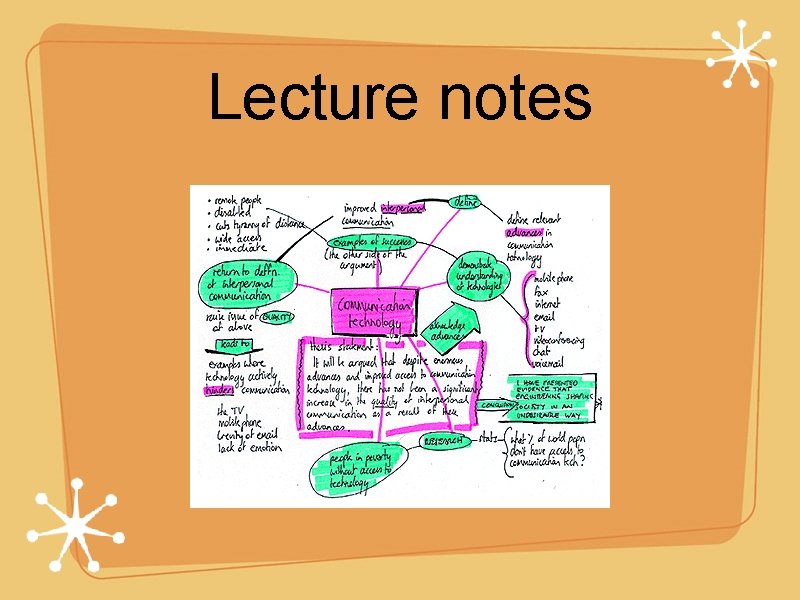 Lecture notes
• remote people
• disabled
• cuts tyranny of distance
• wide access
• immediate
improved interpersonal
communication
define
define relevant
advances in
communication
technology
examples of success
(the other side of the
argument)
return to deffn.
of interpersonal
communication
demonstrate
understanding
of technologies
mobile phone
fax
internet
email
TV
videoconferencing
chat
voicemail
communication
technology
raise issue of QUALITY
of above
leads to
acknowledge
advances
examples where
technology actively
hinders communication
the TV
mobile phone
brevity of email
lack of emotion
thesis statement:
It will be argued that despite enormous
advances and improved access to communication
technology, there has not been a significant
increase in the quality of interpersonal
communication as a result of these
advances.
CONCLUSION
I HAVE PRESENTED
EVIDENCE THAT
ENGINEERING SHAPING
SOCIETY IN AN
UNDESIRABLE WAY
people in poverty
without access to
technology
RESEARCH
stats
what % of world popn
don't have access to
communication tech?